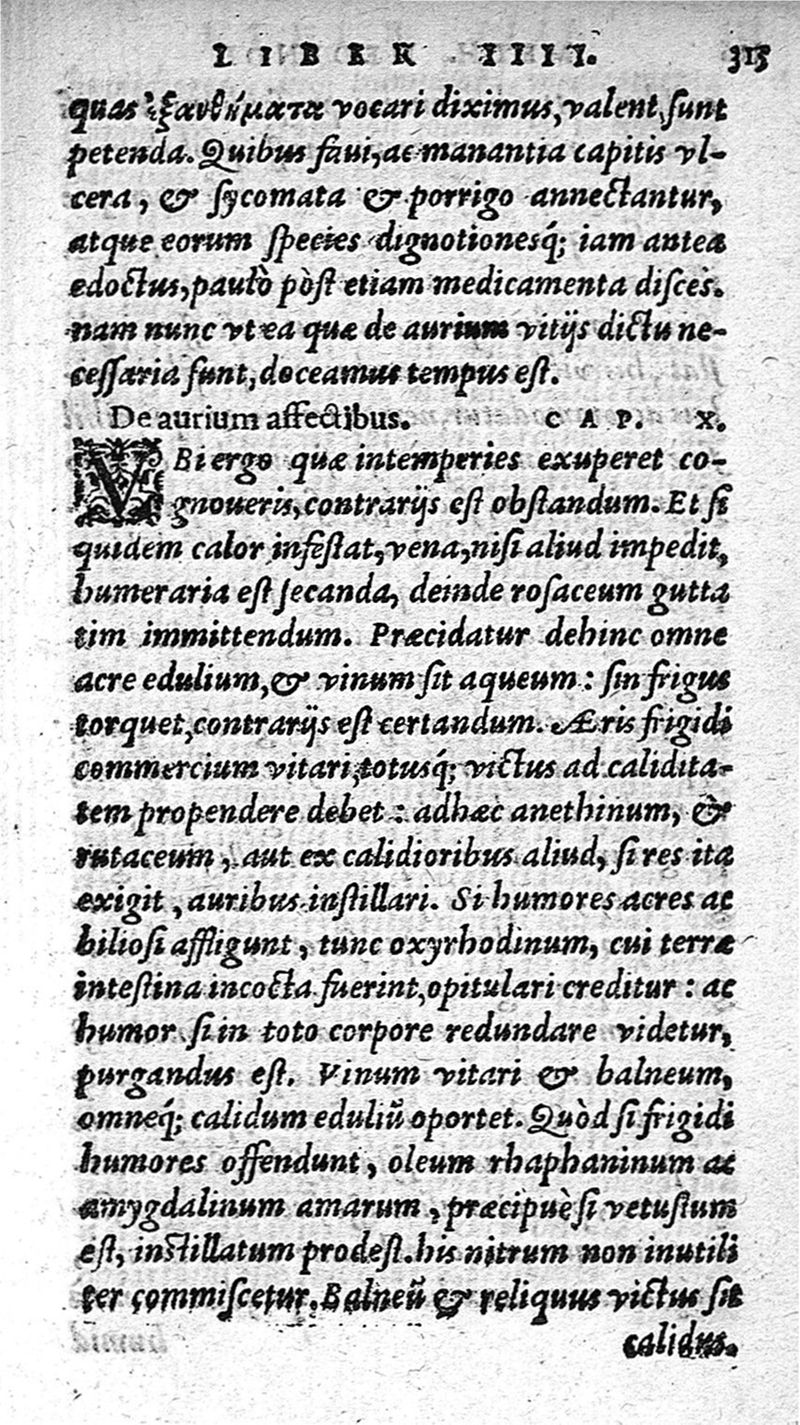 LIBER IIII. 315
quas ἐξανθήματα vocari diximus, valent, sunt
petenda. Quibus faui, ac manantia capitis vl-
cera, & sycomata & porrigo annectantur,
atque eorum species dignotionesq́; iam antea
edoctus, paulò pòst etiam medicamenta disces.
nam nunc vt ea quæ de aurium vitijs dictu ne-
cessaria sunt, doceamus tempus est.
De aurium affectibus. CAP. X.
VBi ergo quæ intemperies exuperet co-
gnoueris, contrarijs est obstandum. Et si
quidem calor infestat, vena, nisi aliud impedit,
humeraria est secanda, deinde rosaceum gutta
tim immittendum. Præcidatur dehinc omne
acre edulium, & vinum sit aqueum: sin frigus
torquet, contrarijs est certandum. Æris frigidi
commercium vitari, totusq́; victus ad calidita-
tem propendere debet: adhæc anethinum, &
rutaceum, aut ex calidioribus aliud, si res ita
exigit, auribus instillari. Si humores acres ac
biliosi affligunt, tunc oxyrhodinum, cui terræ
intestina incocta fuerint, opitulari creditur: ac
humor si in toto corpore redundare videtur,
purgandus est. Vinum vitari & balneum,
omneq́; calidum eduliũ oportet. Quòd si frigidi
humores offendunt, oleum rhaphaninum ac
amygdalinum amarum, præcipuè si vetustum
est, instillatum prodest. his nitrum non inutili
ter commiscetur. Balneũ & reliquus victus sit
calidus.